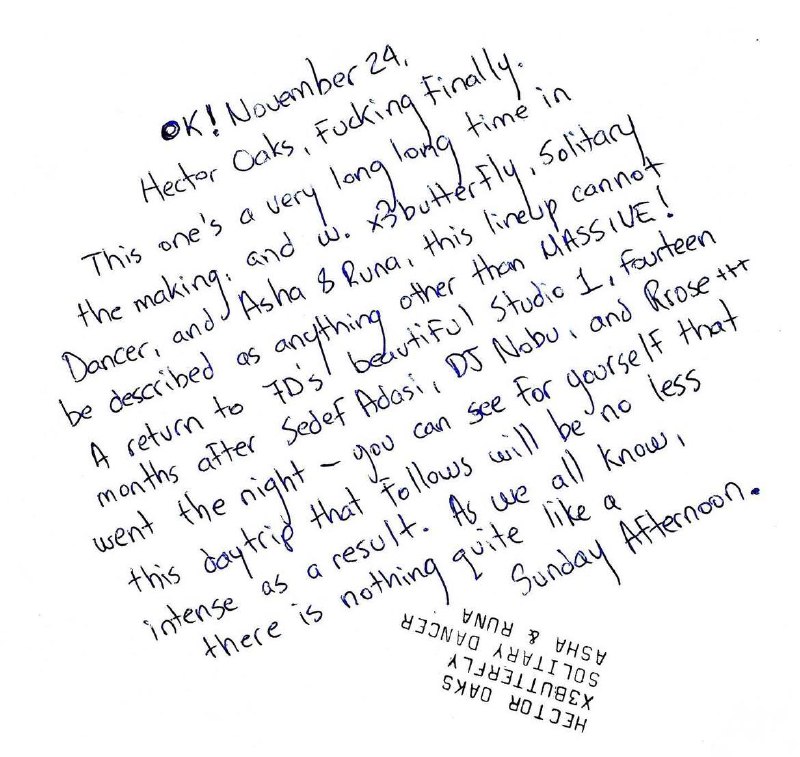 OK! November 24,
Hector Oaks, Fucking Finally.
This one's a very long long time in
the making, and w. x3butterfly, Solitary
Dancer, and Asha & Runa, this lineup cannot
be described as anything other than MASSIVE!
A return to 7D's beautiful Studio 1, fourteen
months after Sedef Adasi, DJ Nobu, and Rrose +++
went the night – you can see for yourself that
this daytrip that follows will be no less
intense as a result. As we all know,
there is nothing quite like a
Sunday Afternoon.
HECTOR OAKS
X3BUTTERFLY
SOLITARY DANCER
ASHA & RUNA